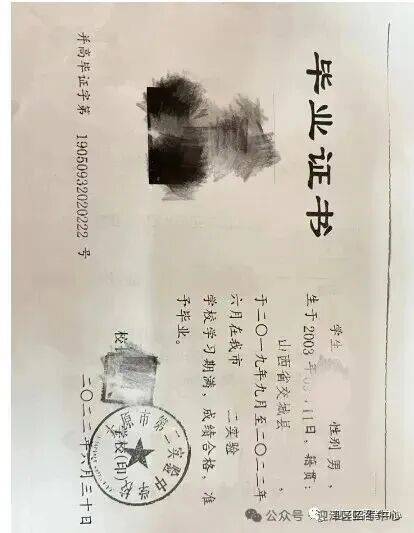 毕业证书
学生 性别 男，
生于2003年 11日，籍贯：
山西省交城县，
于二〇一九年九月至二〇二二年
六月在我市 二实验
学校学习期满，成绩合格，准
予毕业。
校
学校(印)
原市第二实验中学
二〇二二年六月三十日
并高毕证字第 19050932020222 号
公众号